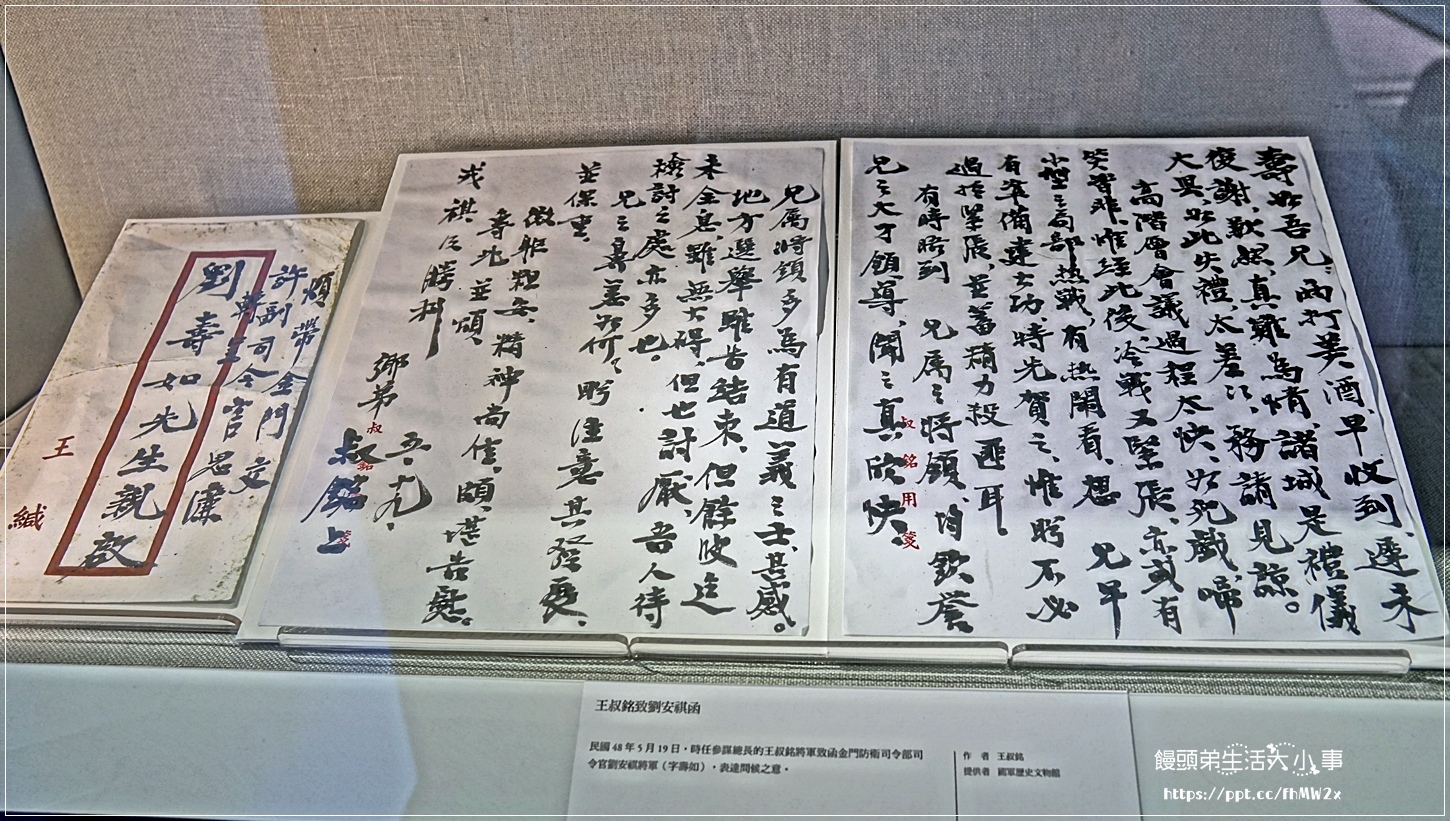 壽如吾兄：兩打美酒，早收到，遲未
復謝，歉然，真難為情，諸城是禮儀
大異，如此失禮，太羞了，務請見諒。
高階層會議過程太快，如死戲，啼
笑皆非，惟經此後，冷戰又緊張，亦或有
小型之局部熱戰，有熱鬧看，想　兄早
有準備建士功，特先賀之，惟盼不必
過於緊張，並蓄精力殺匪耳
有時晤到　兄屬之將領，均欽譽
兄之大才領導，聞之真欣快。
叔銘用箋
兄屬將領多為有道義之士，甚感。
地方選舉雖告結束，但餘波迄
未全息，雖無大碍，但也討厭，吾人待
檢討之處亦多也。
兄之壽
並保重。
微軀粗安，精神尚佳，頤，堪告慰。
專此並頌
戎祺 勝利
鄉弟 叔銘上
五、十九、
煩帶金門
許副司令官思濂
劉壽如先生親啟
王緘
王叔銘致劉安祺函
民國 48 年 5 月 19 日，時任參謀總長的王叔銘將軍致函金門防衛司令部司
令官劉安祺將軍（字壽如），表達問候之意。
作　者　王叔銘
提供者　國軍歷史文物館
饅頭弟生活大小事
https://ppt.cc/fhMW2x